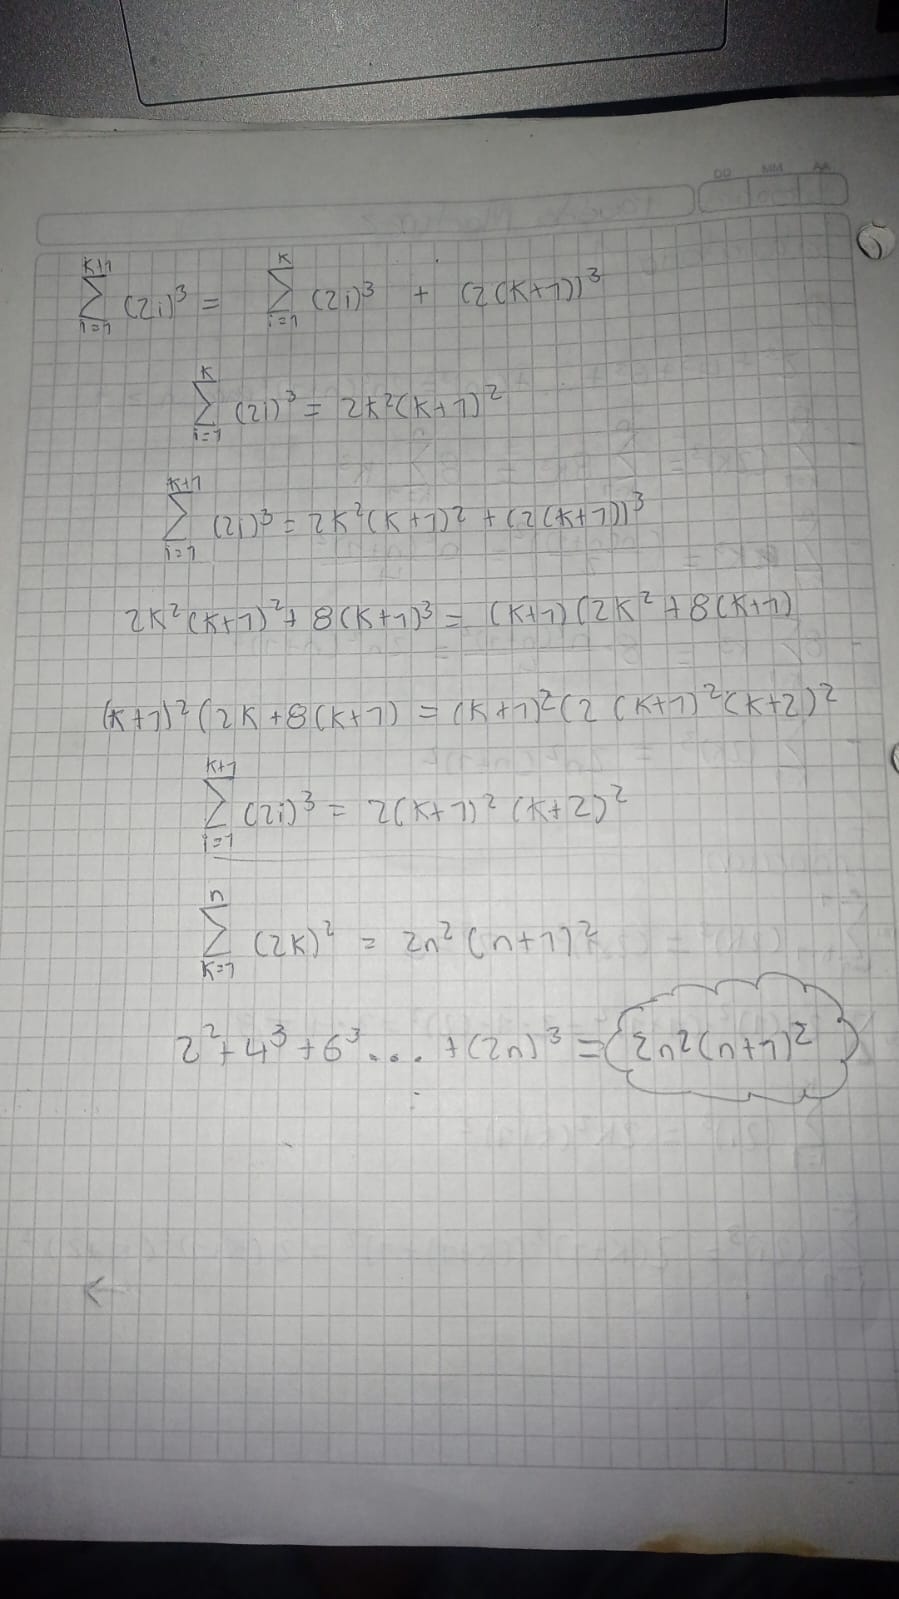 DD MM AA
k+1 ∑ i=1 (2i)³ = k ∑ i=1 (2i)³ + (2(k+1))³
k ∑ i=1 (2i)³ = 2k²(k+1)²
k+1 ∑ i=1 (2i)³ = 2k²(k+1)² + (2(k+1))³
2k²(k+1)² + 8(k+1)³ = (k+1)(2k² + 8(k+1)
(k+1)²(2k+8(k+1) = (k+1)²(2(k+1)²(k+2)²
k+1 ∑ i=1 (2i)³ = 2(k+1)²(k+2)²
n ∑ k=1 (2k)² = 2n²(n+1)²
2²+4³+6³... +(2n)³ = 2n²(n+1)²